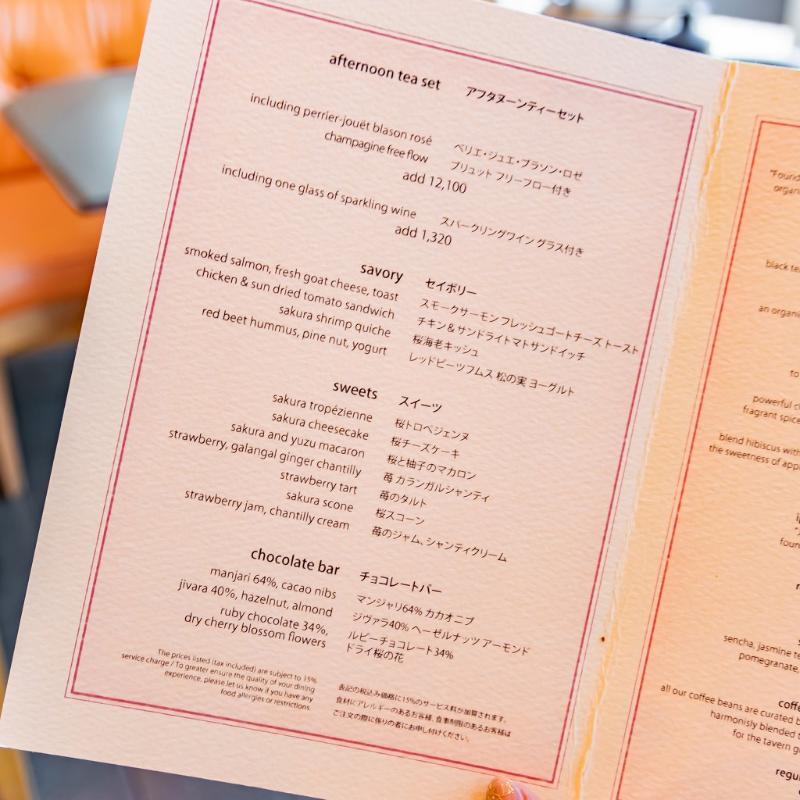 afternoon tea set アフタヌーンティーセット
including perrier-jouët blason rosé ペリエ・ジュエ・ブラソン・ロゼ
champagine free flow ブリュット フリーフロー付き
add 12,100
including one glass of sparkling wine スパークリングワイン グラス付き
add 1,320
savory セイボリー
smoked salmon, fresh goat cheese, toast スモークサーモン フレッシュゴートチーズ トースト
chicken & sun dried tomato sandwich チキン＆サンドライトマトサンドイッチ
sakura shrimp quiche 桜海老キッシュ
red beet hummus, pine nut, yogurt レッドビーツフムス 松の実 ヨーグルト
sweets スイーツ
sakura tropézienne 桜トロペジェンヌ
sakura cheesecake 桜チーズケーキ
sakura and yuzu macaron 桜と柚子のマカロン
strawberry, galangal ginger chantilly 苺 カランガルシャンティ
strawberry tart 苺のタルト
sakura scone 桜スコーン
strawberry jam, chantilly cream 苺のジャム、シャンティクリーム
chocolate bar チョコレートバー
manjari 64%, cacao nibs マンジャリ64% カカオニブ
jivara 40%, hazelnut, almond ジヴァラ40% ヘーゼルナッツ アーモンド
ruby chocolate 34%, ルビーチョコレート34%
dry cherry blossom flowers ドライ桜の花
The prices listed (tax included) are subject to 15%
service charge / To greater ensure the quality of your dining
experience, please let us know if you have any
food allergies or restrictions.
表記の税込み価格に15%のサービス料が加算されます。
食材にアレルギーのあるお客様、食事制限のあるお客様は
ご注文の際に係りの者にお申し付けください。
"Found
organ
black te
an organi
to
powerful c
fragrant spice
blend hibiscus with
the sweetness of app
foun
sencha, jasmine te
pomegranate,
coffe
all our coffee beans are curated b
harmonisly blended t
for the tavern g
regu